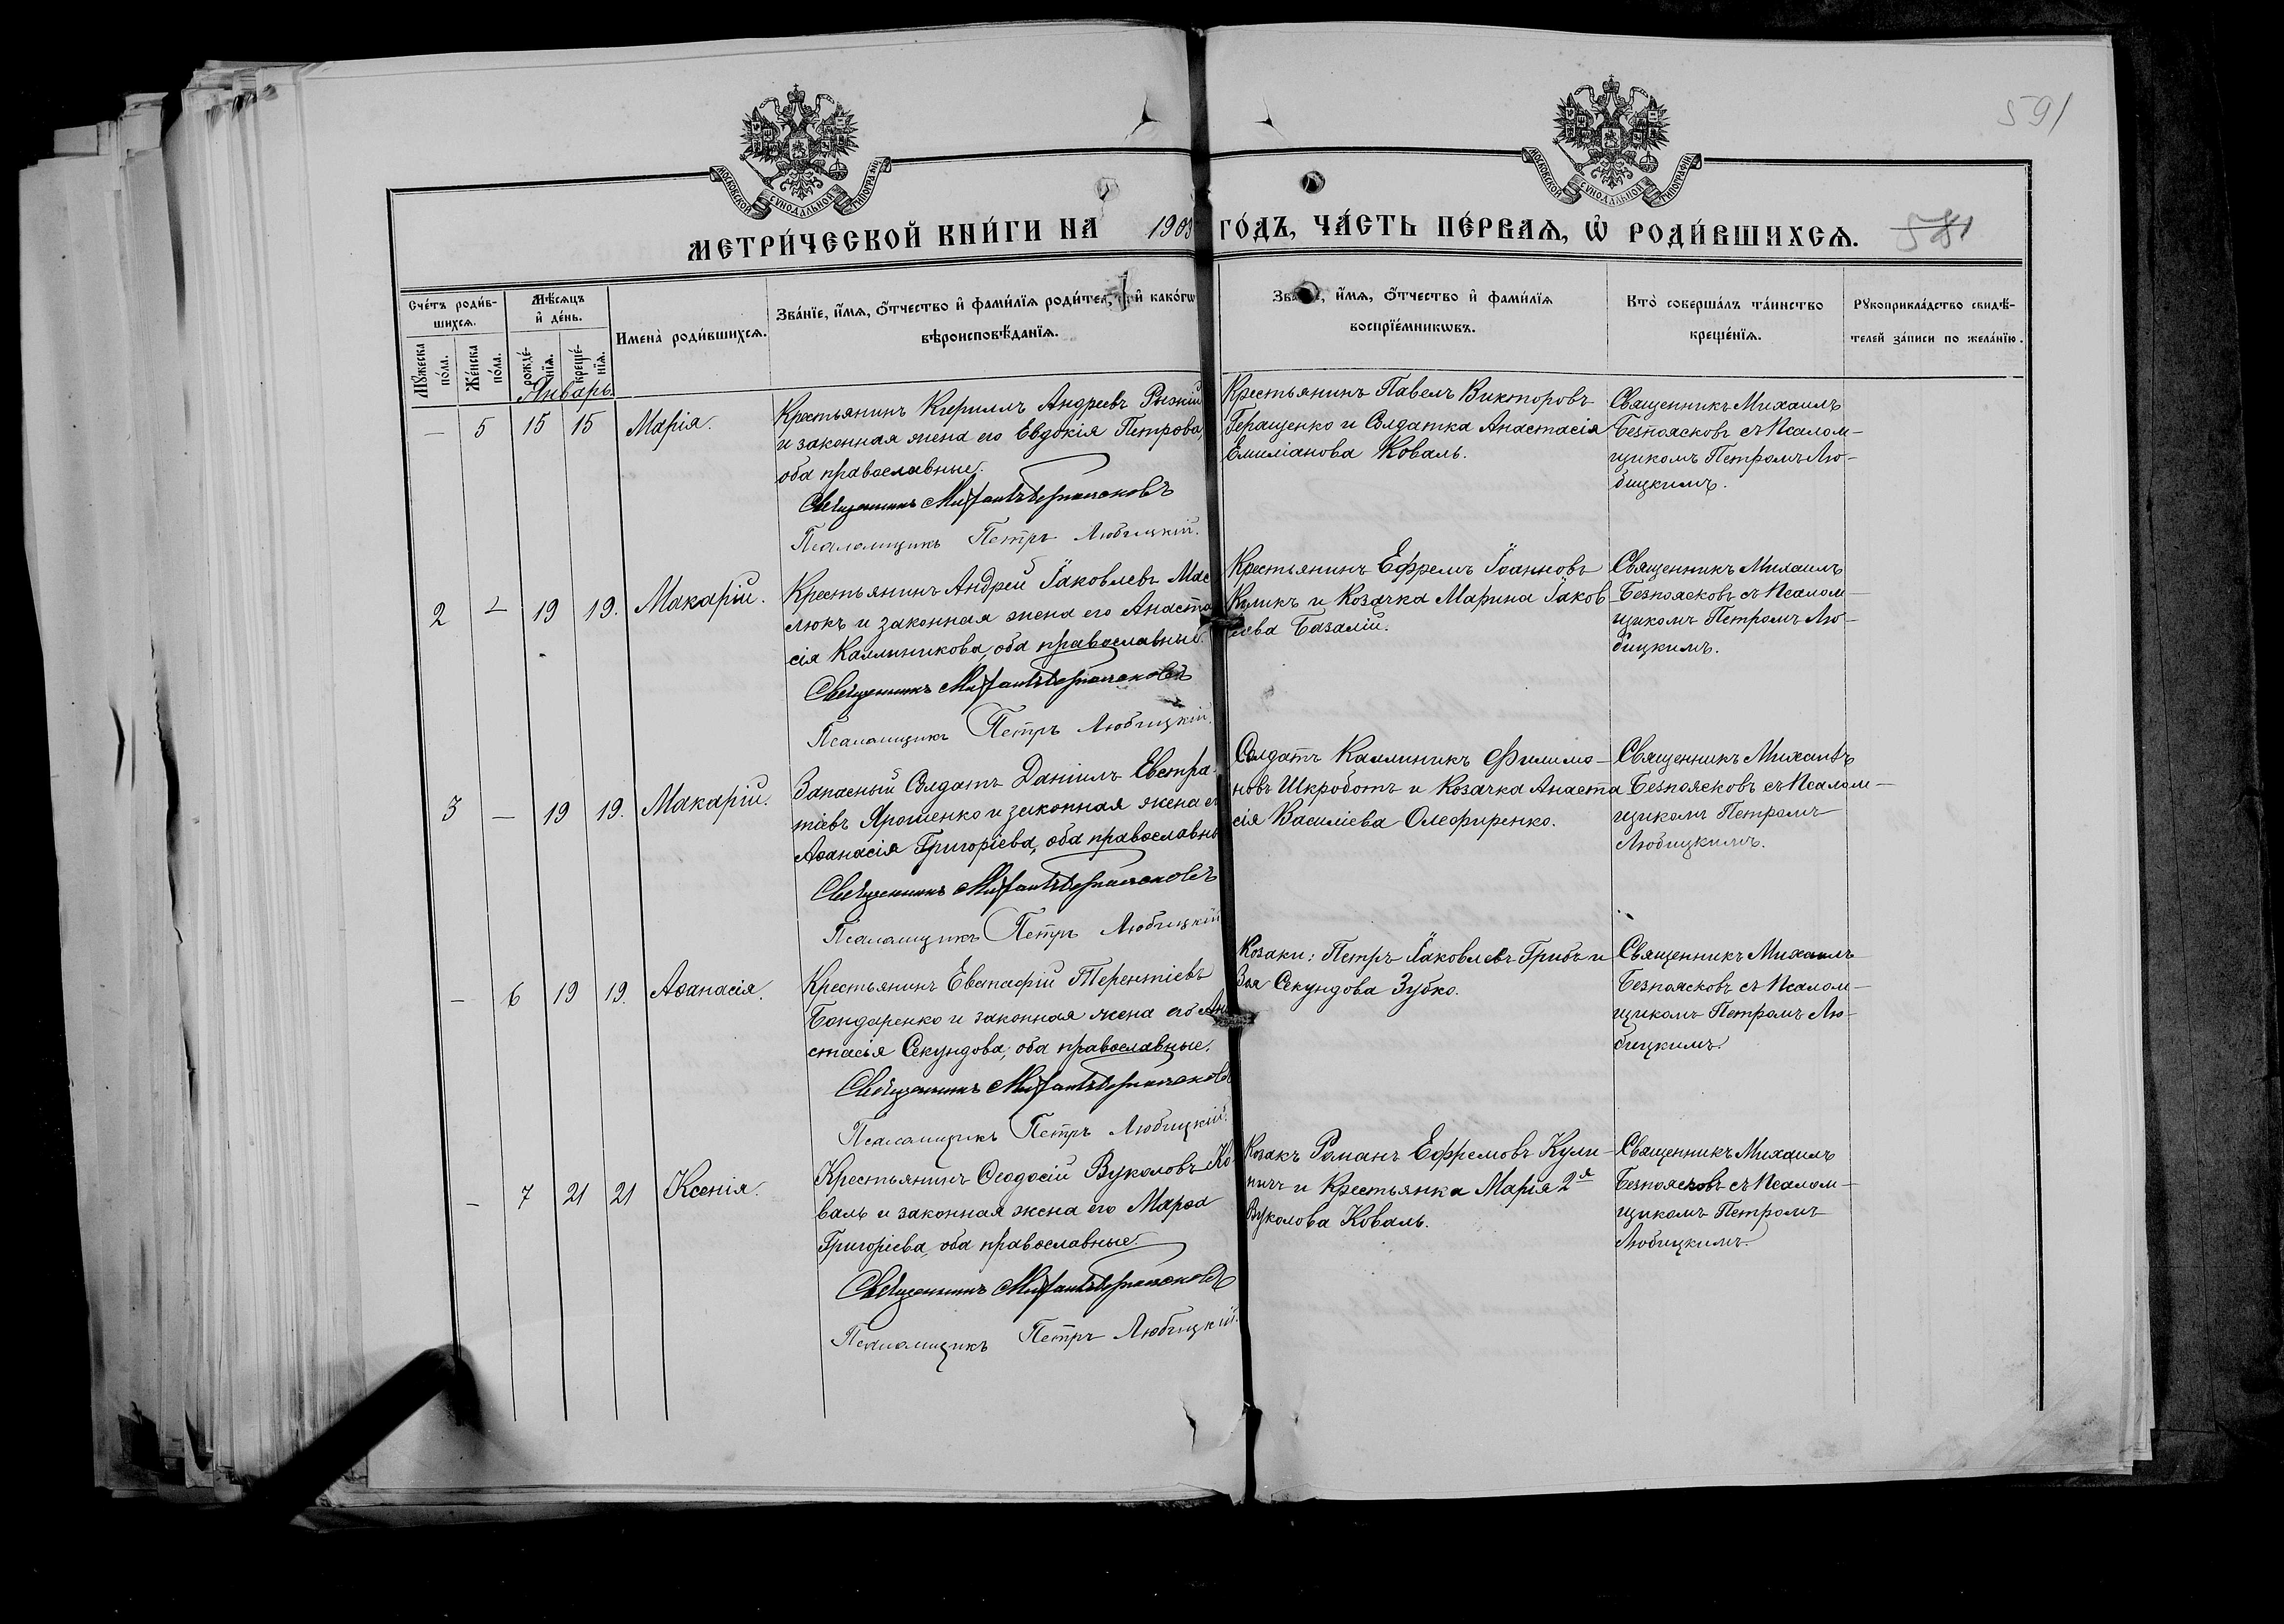 591
МОСКОВСКОЙ СѴНОДАЛЬНОЙ ТИПОГРАФІИ
МОСКОВСКОЙ СѴНОДАЛЬНОЙ ТИПОГРАФІИ
МЕТРИ́ЧЕСКОЙ КНИ́ГИ НА 1903 ГО́ДЪ, ЧА́СТЬ ПЕ́РВАѦ, Ѽ РОДИ́ВШИХСѦ. 581
Сче́тъ роди́в-
шихсѧ.
Мꙋ́жеска по́ла.
Же́нска по́ла.
Мѣ́сѧцъ
и҆ де́нь.
рожде́-
нїѧ.
креще́-
нїѧ.
Имена̀ роди́вшихсѧ.
Зва́нїе, и҆́мѧ, ѻ҆́тчество и҆ фами́лїѧ роди́тел, и҆ како́гѡ
вѣроисповѣ́данїѧ.
Зва, и҆́мѧ, ѻ҆́тчество и҆ фами́лїѧ
воспрїе́мникѡвъ.
Кто̀ соверша́лъ та́инство
креще́нїѧ.
Рꙋкоприкла́дство свидѣ́-
телей за́писи по жела́нїю.
Январь.
— 5 15 15 Марія.
Крестьянинъ Кириллъ Андреевъ Рызкій
и законная жена его Евдокія Петрова,
оба православные.
Священникъ Михаилъ Безпоясковъ
Псаломщикъ Петръ Любицкій.
Крестьянинъ Павелъ Викторовъ
Геращенко и Солдатка Анастасія
Емиліанова Коваль.
Священникъ Михаилъ
Безпоясковъ съ Псалом-
щикомъ Петромъ Лю-
бицкимъ.
2 — 19 19. Макарій.
Крестьянинъ Андрей Іаковлевъ Мас
люкъ и законная жена его Анаста
сія Каллиникова, оба православные.
Священникъ Михаилъ Безпоясковъ
Псаломщикъ Петръ Любицкій.
Крестьянинъ Ефремъ Іоанновъ
Куликъ и Козачка Марина Іаков
лева Базалій.
Священникъ Михаилъ
Безпоясковъ съ Псалом-
щикомъ Петромъ Лю-
бицкимъ.
3 — 19 19. Макарій.
Запасный Солдатъ Даніилъ Евстра-
тіевъ Ярошенко и законная жена ег
Аѳанасія Григоріева, оба православны
Священникъ Михаилъ Безпоясковъ
Псаломщикъ Петръ Любицкій
Солдатъ Каллиникъ Филимо-
новъ Шкроботъ и Козачка Анаста
сія Василіева Олефиренко.
Священникъ Михаилъ
Безпоясковъ съ Псалом-
щикомъ Петромъ
Любицкимъ.
— 6 19 19. Аѳанасія.
Крестьянинъ Евстафій Терентіевъ
Бондаренко и законная жена его Ан
стасія Секундова, оба православные.
Священникъ Михаилъ Безпоясковъ
Псаломщикъ Петръ Любицкій.
Козаки: Петръ Іаковлевъ Грибъ и
Зоя Секундова Зубко.
Священникъ Михаилъ
Безпоясковъ съ Псалом-
щикомъ Петромъ Лю-
бицкимъ.
— 7 21 21 Ксенія.
Крестьянинъ Ѳеодосій Вуколовъ Ко-
валь и законная жена его Марѳа
Григоріева, оба православные.
Священникъ Михаилъ Безпоясковъ
Псаломщикъ Петръ Любицкій.
Козакъ Романъ Ефремовъ Кули-
ничъ и Крестьянка Марія 2я
Вуколова Коваль.
Священникъ Михаилъ
Безпоясковъ съ Псалом-
щикомъ Петромъ
Любицкимъ.